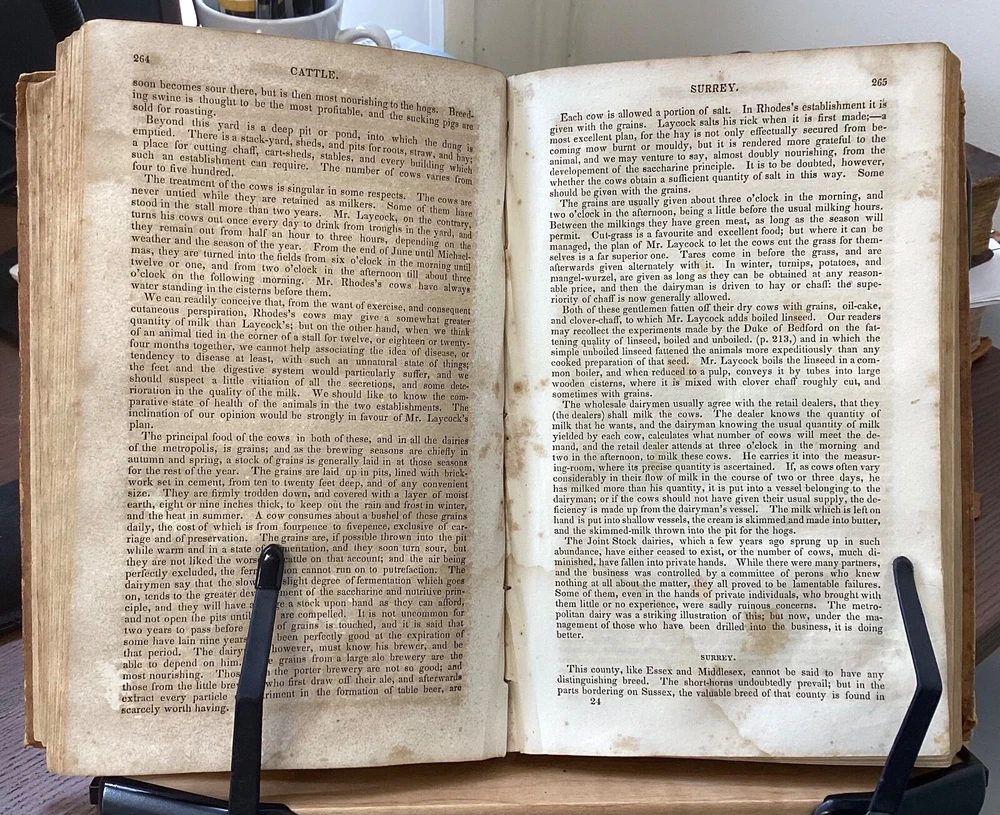 264
CATTLE.
soon becomes sour there, but is then most nourishing to the hogs. Breed-
ing swine is thought to be the most profitable, and the sucking pigs are
sold for roasting.
Beyond this yard is a deep pit or pond, into which the dung is
emptied. There is a stack-yard, sheds, and pits for roots, straw, and hay;
a place for cutting chaff, cart-sheds, stables, and every building which
such an establishment can require. The number of cows varies from
four to five hundred.
The treatment of the cows is singular in some respects. The cows are
never untied while they are retained as milkers. Some of them have
stood in the stall more than two years. Mr. Laycock, on the contrary,
turns his cows out once every day to drink from troughs in the yard, and
they remain out from half an hour to three hours, depending on the
weather and the season of the year. From the end of June until Michael-
mas, they are turned into the fields from six o'clock in the morning until
twelve or one, and from two o'clock in the afternoon till about three
o'clock on the following morning. Mr. Rhodes's cows have always
water standing in the cisterns before them.
We can readily conceive that, from the want of exercise, and consequent
cutaneous perspiration, Rhodes's cows may give a somewhat greater
quantity of milk than Laycock's; but on the other hand, when we think
of an animal tied in the corner of a stall for twelve, or eighteen or twenty-
four months together, we cannot help associating the idea of disease, or
tendency to disease at least, with such an unnatural state of things;
the feet and the digestive system would particularly suffer, and we
should suspect a little vitiation of all the secretions, and some dete-
rioration in the quality of the milk. We should like to know the com-
parative state of health of the animals in the two establishments. The
inclination of our opinion would be strongly in favour of Mr. Laycock's
plan.
The principal food of the cows in both of these, and in all the dairies
of the metropolis, is grains; and as the brewing seasons are chiefly in
autumn and spring, a stock of grains is generally laid in at those seasons
for the rest of the year. The grains are laid up in pits, lined with brick-
work set in cement, from ten to twenty feet deep, and of any convenient
size. They are firmly trodden down, and covered with a layer of moist
earth, eight or nine inches thick, to keep out the rain and frost in winter,
and the heat in summer. A cow consumes about a bushel of these grains
daily, the cost of which is from fourpence to fivepence, exclusive of car-
riage and of preservation. The grains are, if possible thrown into the pit
while warm and in a state of mentation, and they soon turn sour, but
they are not liked the worse attle on that account; and the air being
perfectly excluded, the fer ion cannot run on to putrefaction. The
dairymen say that the slow slight degree of fermentation which goes
on, tends to the greater dev ent of the saccharine and nutritive prin-
ciple, and they will have a e a stock upon hand as they can afford,
and not open the pits until are compelled. It is not uncommon for
two years to pass before grains is touched, and it is said that
some have lain nine years been perfectly good at the expiration of
that period. The dairy however, must know his brewer, and be
able to depend on him. grains from a large ale brewery are the
most nourishing. Thos the porter brewery are not so good; and
those from the little brew who first draw off their ale, and afterwards
extract every particle riment in the formation of table beer, are
scarcely worth having.
SURREY.
265
Each cow is allowed a portion of salt. In Rhodes's establishment it is
given with the grains. Laycock salts his rick when it is first made;—a
most excellent plan, for the hay is not only effectually secured from be-
coming mow burnt or mouldy, but it is rendered more grateful to the
animal, and we may venture to say, almost doubly nourishing, from the
developement of the saccharine principle. It is to be doubted, however,
whether the cows obtain a sufficient quantity of salt in this way. Some
should be given with the grains.
The grains are usually given about three o'clock in the morning, and
two o'clock in the afternoon, being a little before the usual milking hours.
Between the milkings they have green meat, as long as the season will
permit. Cut-grass is a favourite and excellent food; but where it can be
managed, the plan of Mr. Laycock to let the cows cut the grass for them-
selves is a far superior one. Tares come in before the grass, and are
afterwards given alternately with it. In winter, turnips, potatoes, and
mangel-wurzel, are given as long as they can be obtained at any reason-
able price, and then the dairyman is driven to hay or chaff: the supe-
riority of chaff is now generally allowed.
Both of these gentlemen fatten off their dry cows with grains, oil-cake,
and clover-chaff, to which Mr. Laycock adds boiled linseed. Our readers
may recollect the experiments made by the Duke of Bedford on the fat-
tening quality of linseed, boiled and unboiled. (p. 213,) and in which the
simple unboiled linseed fattened the animals more expeditiously than any
cooked preparation of that seed. Mr. Laycock boils the linseed in a com-
mon boiler, and when reduced to a pulp, conveys it by tubes into large
wooden cisterns, where it is mixed with clover chaff roughly cut, and
sometimes with grains.
The wholesale dairymen usually agree with the retail dealers, that they
(the dealers) shall milk the cows. The dealer knows the quantity of
milk that he wants, and the dairyman knowing the usual quantity of milk
yielded by each cow, calculates what number of cows will meet the de-
mand, and the retail dealer attends at three o'clock in the morning and
two in the afternoon, to milk these cows. He carries it into the measur-
ing-room, where its precise quantity is ascertained. If, as cows often vary
considerably in their flow of milk in the course of two or three days, he
has milked more than his quantity, it is put into a vessel belonging to the
dairyman; or if the cows should not have given their usual supply, the de-
ficiency is made up from the dairyman's vessel. The milk which is left on
hand is put into shallow vessels, the cream is skimmed and made into butter,
and the skimmed-milk thrown into the pit for the hogs.
The Joint Stock dairies, which a few years ago sprung up in such
abundance, have either ceased to exist, or the number of cows, much di-
minished, have fallen into private hands. While there were many partners,
and the business was controlled by a committee of perons who knew
nothing at all about the matter, they all proved to be lamentable failures.
Some of them, even in the hands of private individuals, who brought with
them little or no experience, were sadly ruinous concerns. The metro-
politan dairy was a striking illustration of this; but now, under the ma-
nagement of those who have been drilled into the business, it is doing
better.
SURREY.
This county, like Essex and Middlesex, cannot be said to have any
distinguishing breed. The short-horns undoubtedly prevail; but in the
parts bordering on Sussex, the valuable breed of that county is found in
24